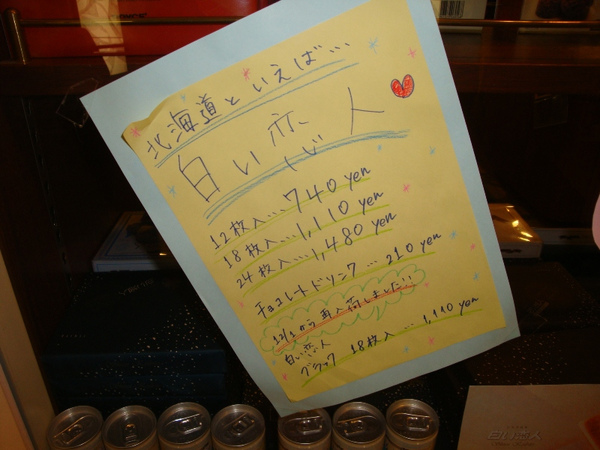 北海道といえば…
白い恋人
12枚入…740 yen
18枚入…1,110 yen
24枚入…1,480 yen
チョコレートドリンク…210 yen
12/1から再入荷しました!!
白い恋人
ブラック 18枚入…1,110 yen
白い恋人